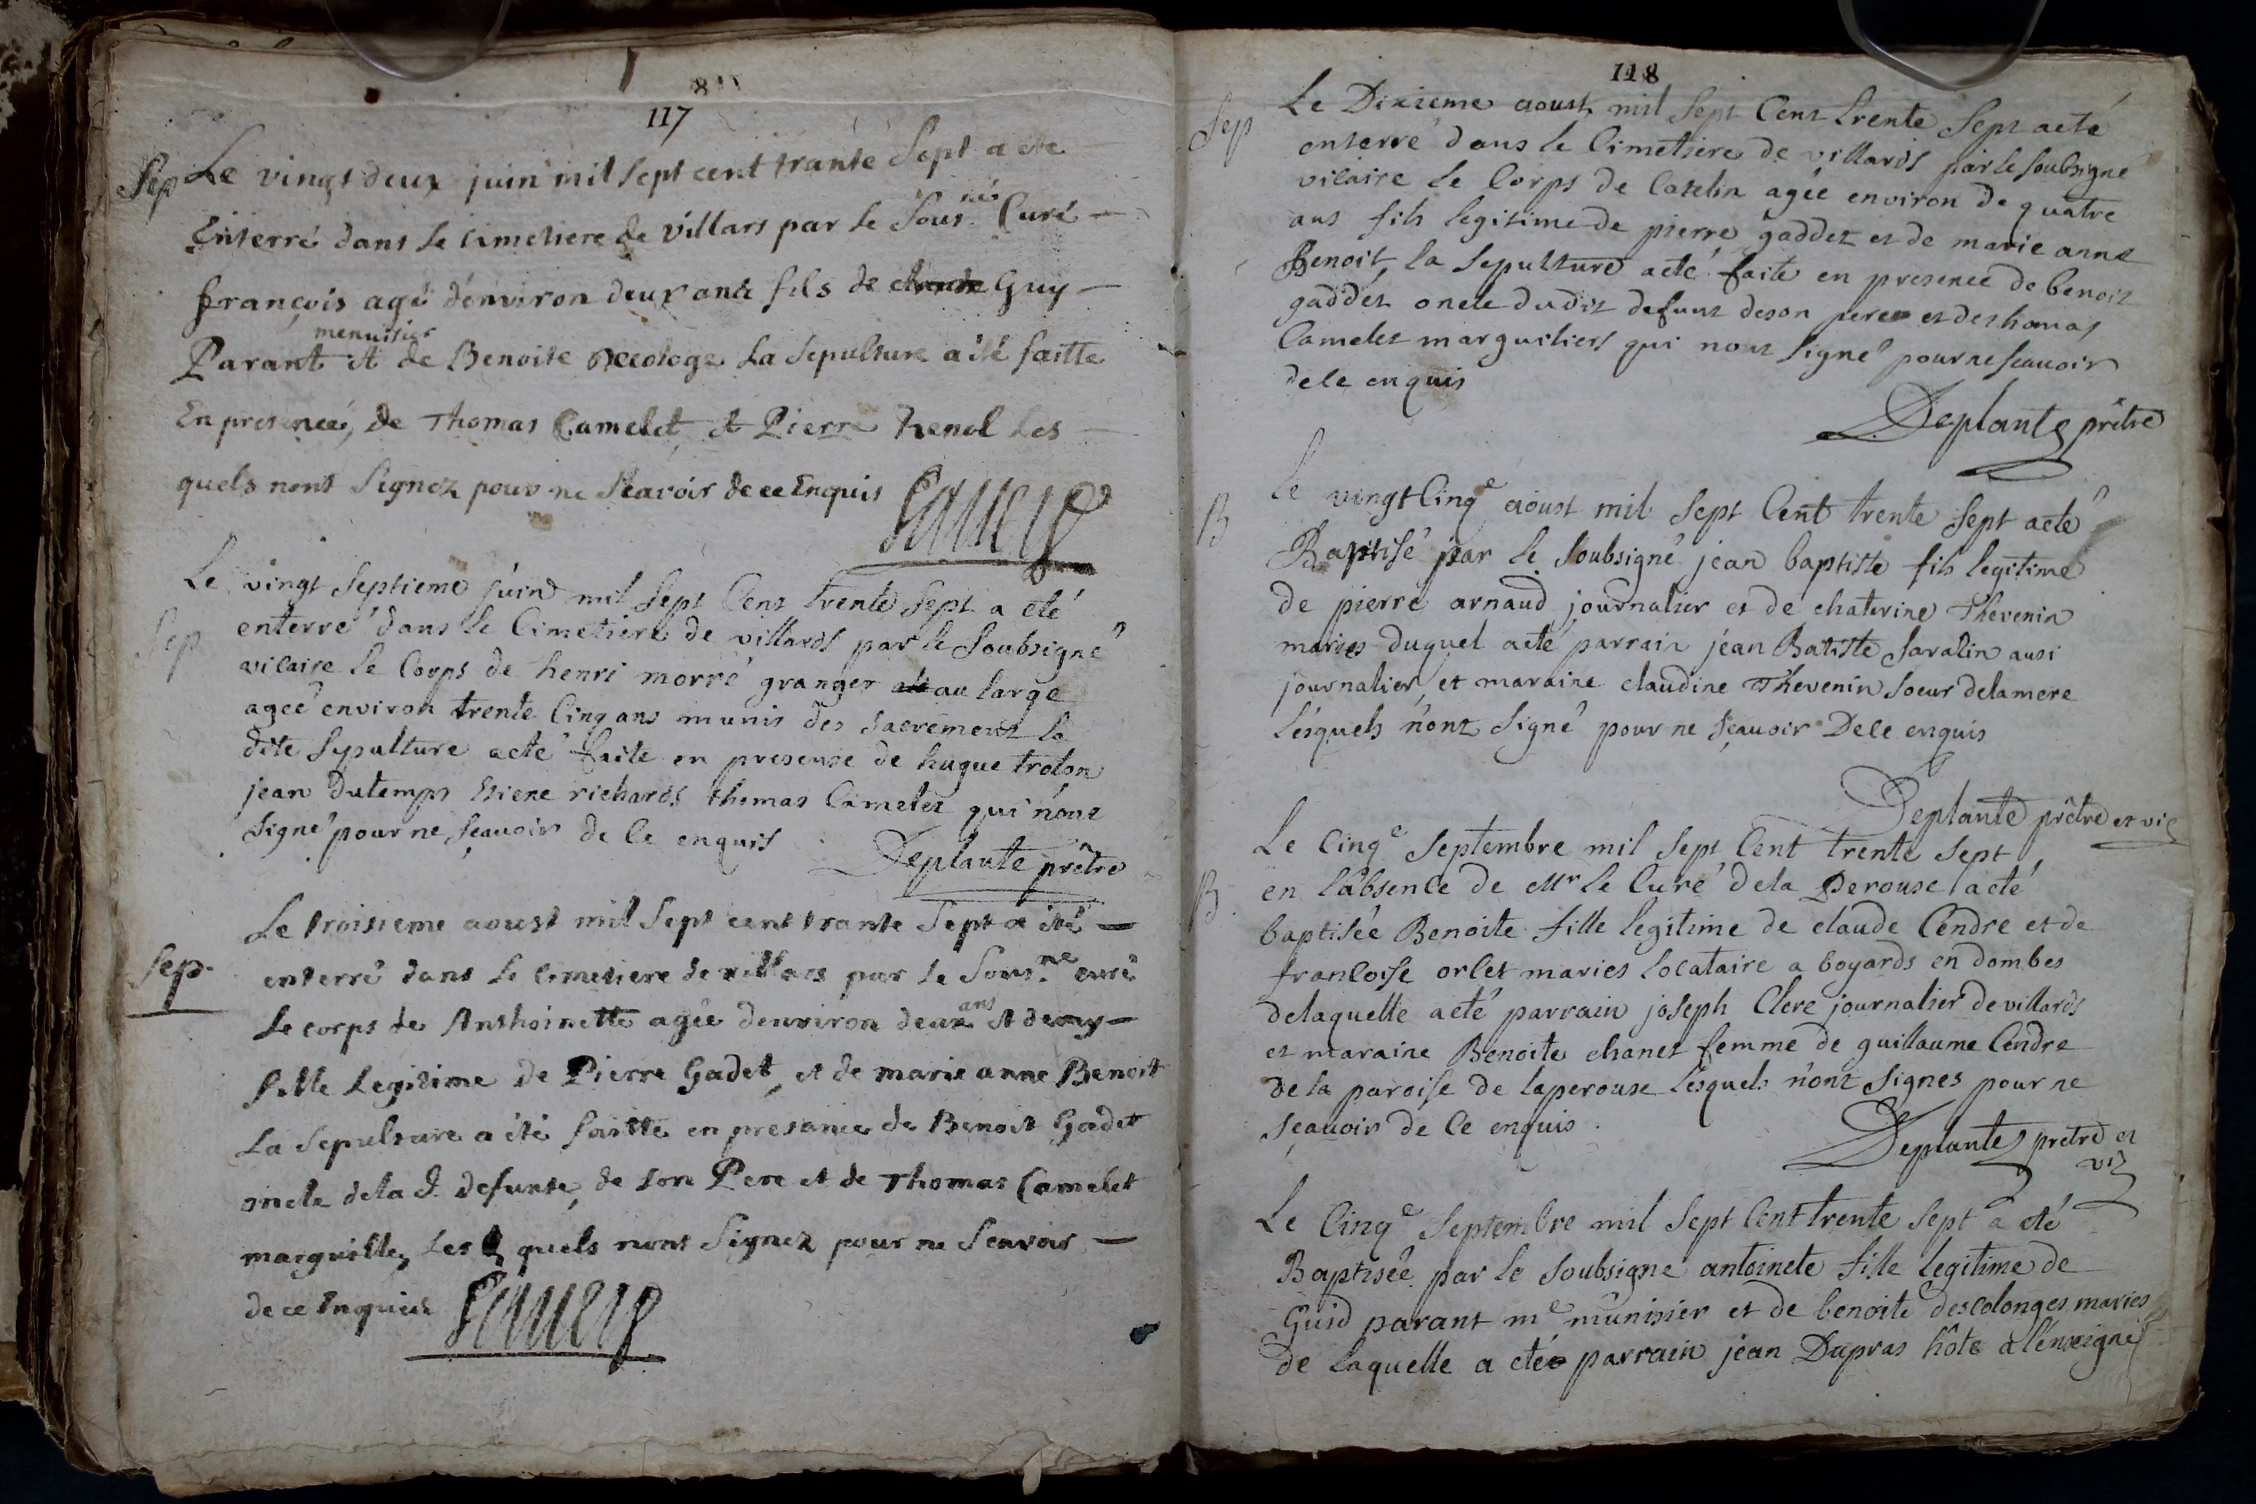 117
Sep Le vingt deux juin mil sept cent trante Sept a eté
Enterré dans le cimetiere de villars par le Sous.né Curé
françois agé d'environ deux ans fils de claude Guy
menuisier
Parant et de Benoite la Sepulture a été faitte
En presence, de Thomas Camelet, et Pierre henol Les
quels nont Signez pour ne Scavoir de ce Enquis
Sep
Le vingt Septieme juin mil Sept Cent trente Sept a eté
enterré dans le Cimetiere de villards par le Soubsigné
vicaire le Corps de henri morré granger au large
ageé environ trente Cinq ans munis des sacrement la
dite Sepulture aeté faite en presense de hugue trolon
jean Dutemps Etiene richards thomas Camelet qui n'ont
Signé pour ne sçavoir de Ce enquis
Deplante prêtre
Sep.
Le troisieme aoust mil Sept cent trante Sept a été
enterré dans le cimetiere de villars par le Sous.né curé
ans
Le corps de Anthoinette agée denviron deux et demy
fille Legitime de Pierre Gadet, et de marie anne Benoit
La Sepulture a été faitte en presance de Benoit Gadet
oncle dela d. defunte, de son Pere et de Thomas Camelet
marguille, Les quels nont Signez pour ne Scavoir
de ce Enquies
118
Sep
Le Dixieme aoust mil Sept Cent trente Sept aeté
enterré dans le Cimetiere de villards par le soubsigné
vicaire Le Corps de agée environ de quatre
ans fils legitime de pierre gaddet et de marie anne
Benoit, la Sepulture aeté faite en presence de benoit
gaddet oncle dudit defunt deson pere et dethomas
Camelet marguiliers qui n'ont Signé pour ne scauoir
dele enquis
Deplante prêtre
B
Le vingt Cinqe aoust mil Sept Cent trente Sept aeté
Baptisé par le Soubsigné jean baptiste fils legitime
de pierre arnaud journalier et de chaterine Thevenin
maries duquel aeté parrain jean Batiste Savatin ausi
journalier, et maraine claudine Thevenin Soeur delamere
Lesquels n'ont Signé pour ne sçauoir De ce enquis
Deplante prêtre et vic
B
Le Cinqe Septembre mil Sept Cent trente Sept
en l'absence de Mr le Curé dela Perouse aeté
baptisée Benoite fille legitime de claude Cendre et de
francoise orlet maries locataire a boyards en dombes
delaquelle aeté parrain joseph Clerc journalier de villards
et maraine Benoite chanet femme de guillaume Cendre
de la paroise de laperouse lesquels n'ont Signes pour ne
sçavoir de Ce enquis.
Deplante pretre et
vic
Le Cinqe Septembre mil Sept Cent trente Sept a eté
Baptisée par le Soubsigne antoinete fille legitime de
Guid parant me munisier et de benoite descolonges maries
de laquelle a eté parrain jean Dupras hôte a l'enseigne